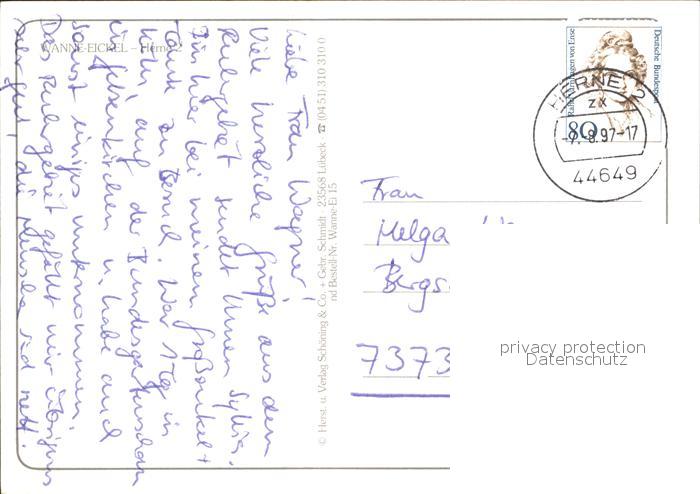 WANNE-EICKEL – Herne 2
Liebe Frau Wagner!
Viele herzliche Grüße aus dem
Ruhrgebiet sendet Ihnen Sylvia.
Bin hier bei meinem Großonkel +
Tante zu Besuch. War 1 Tag in
Köln auf der Bundesgartenschau
in Gelsenkirchen u. habe auch
sonst einiges unternommen.
Das Ruhrgebiet gefällt mir übrigens
sehr gut, die Menschen sind nett!
© Herst. u. Verlag Schöning & Co. + Gebr. Schmidt · 23568 Lübeck · ☎ (04 51) 310 310 0
nd Bestell-Nr. Wanne-Ei 15
Deutsche Bundespost
Rahel Varnhagen von Ense
80
HERNE 2
zx
-7.-8.97-17
44649
Frau
Helga
Bergs
7373
privacy protection
Datenschutz